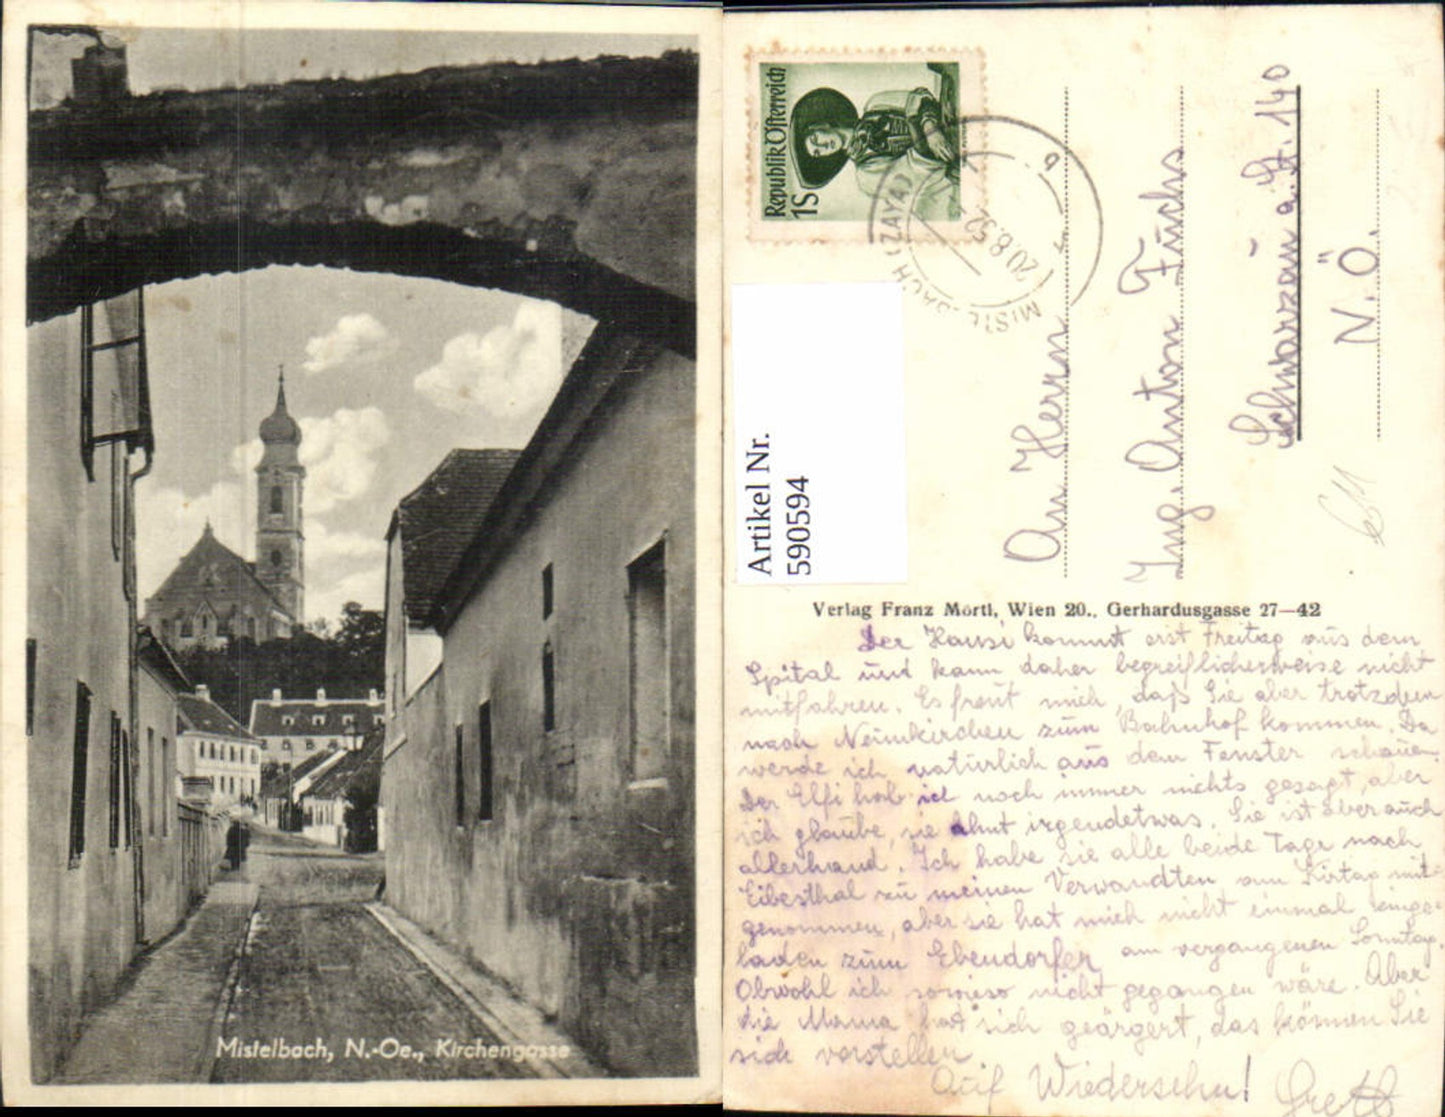 Mistelbach, N.-Oe., Kirchengasse
Republik Österreich
1S
MISTELBACH (ZAYA)
20.8.52
Artikel Nr.
590594
An Herrn
Ing. Anton Fuchs
Schwarzau a. St. 140
N.Ö.
Verlag Franz Mörtl, Wien 20., Gerhardusgasse 27—42
Der Hansi kommt erst Freitag aus dem
Spital und kann daher begreiflicherweise nicht
mitfahren. Es freut mich, daß Sie aber trotzdem
nach Neunkirchen zum Bahnhof kommen. Da
werde ich natürlich aus dem Fenster schauen.
Der Elfi hab ich noch immer nichts gesagt, aber
ich glaube, sie ahnt irgendetwas. Sie ist aber auch
allerhand. Ich habe sie alle beide Tage nach
Eibesthal zu meinen Verwandten zum Kirtag mit-
genommen, aber sie hat mich nicht einmal einge-
laden zum Ebendorfer, am vergangenen Sonntag.
Obwohl ich sowieso nicht gegangen wäre. Aber
die Mama hat sich geärgert, das können Sie
sich vorstellen.
Auf Wiedersehn!